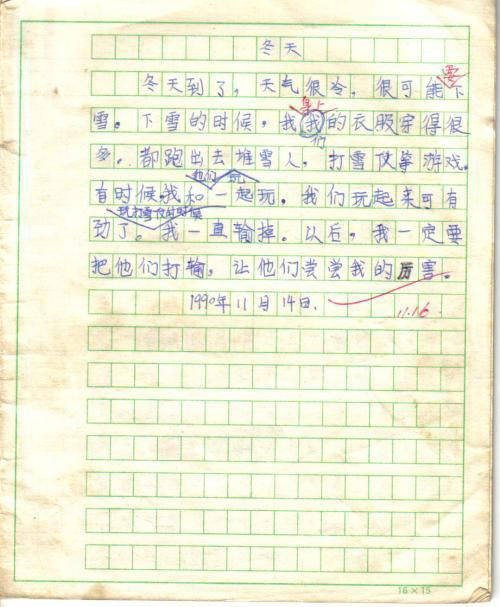 冬天
冬天到了，天气很冷，很可能要下
雪。下雪的时候，我身上我们的衣服穿得很
多。都跑出去堆雪人，打雪仗等游戏。
有时候我和他们一起玩玩。我们玩起来可有
劲了。玩打雪仗的时候我一直输掉。以后，我一定要
把他们打输，让他们尝尝我的厉害。
1990年11月14日.
11.16
16×15